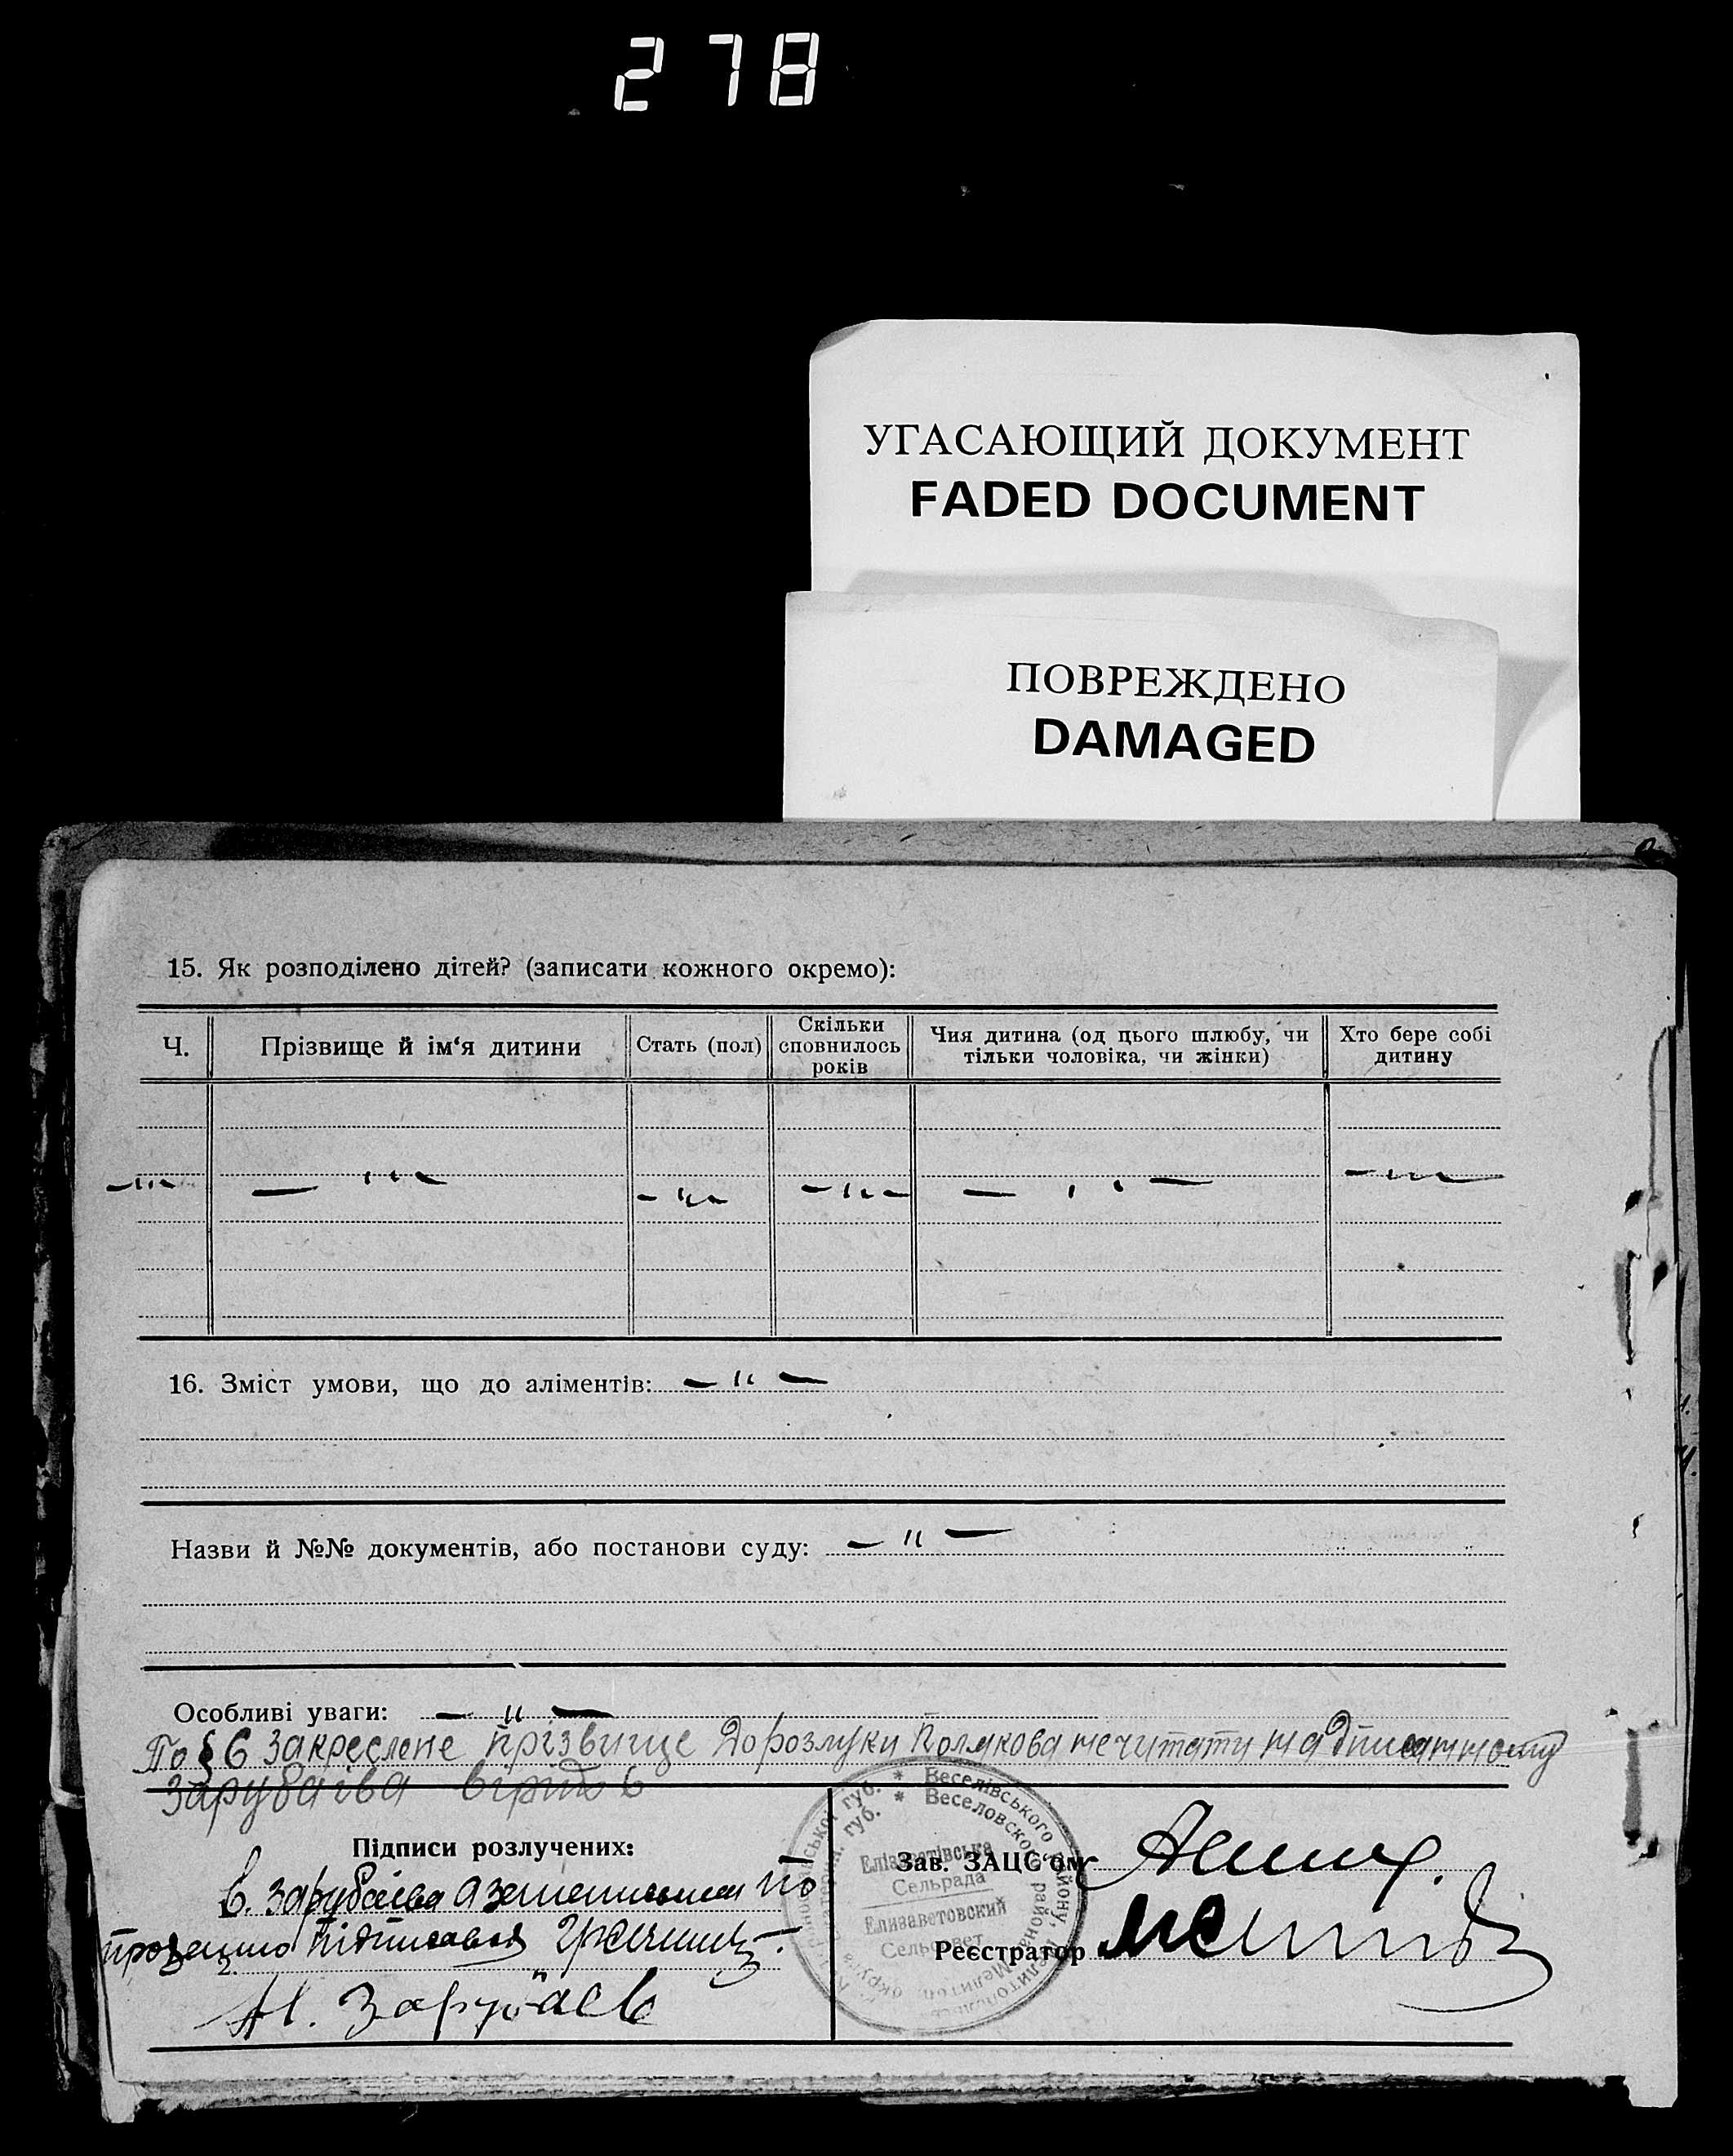 278
УГАСАЮЩИЙ ДОКУМЕНТ
FADED DOCUMENT
ПОВРЕЖДЕНО
DAMAGED
15. Як розподілено дітей? (записати кожного окремо):
Ч.
Прізвище й ім‘я дитини
Стать (пол)
Скільки
сповнилось
років
Чия дитина (од цього шлюбу, чи
тільки чоловіка, чи жінки)
Хто бере собі
дитину
16. Зміст умови, що до аліментів: — " —
Назви й №№ документів, або постанови суду: — " —
Особливі уваги: — " —
По § 6 закреслене прізвище до розлуки Полякова не читати надписанному
Зарубаїва
Підписи розлучених:
В. Зарубаїва а за по
підписався
Н. Зарубаев
Зав. ЗАЦС‘ом
Реєстратор
Веселівського району,
Веселовского района
Елізаветівська
Сельрада
Елизаветовский
Сельсовет